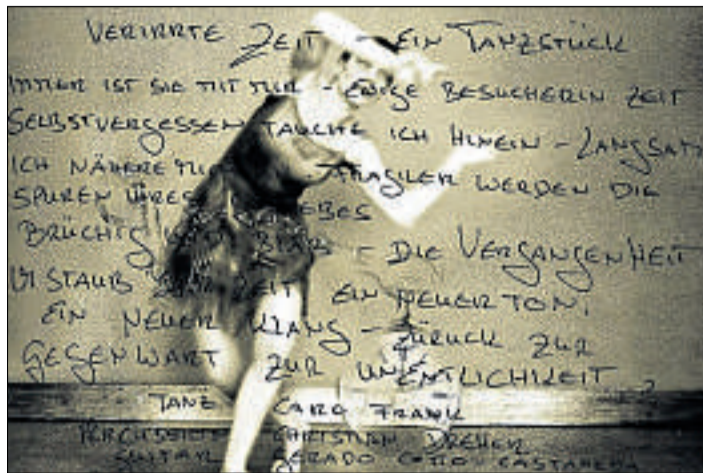 VERIRRTE ZEIT - EIN TANZSTÜCK
IMMER IST SIE MIT MIR - EWIGE BESUCHERIN ZEIT
SELBSTVERGESSEN TAUCHE ICH HINEIN - LANGSAM
ICH NÄHERE MICH - FRAGILER WERDEN DIE
SPUREN IHRES
BRÜCHIG - DIE VERGANGENHEIT
STAUB ZEIT EIN NEUER TON,
EIN NEUER KLANG - ZURÜCK ZUR
GEGENWART ZUR UNENTLICHKEIT ?
TANZ CARO FRANK
CHRISTIAN DREHER
GERADO COTO